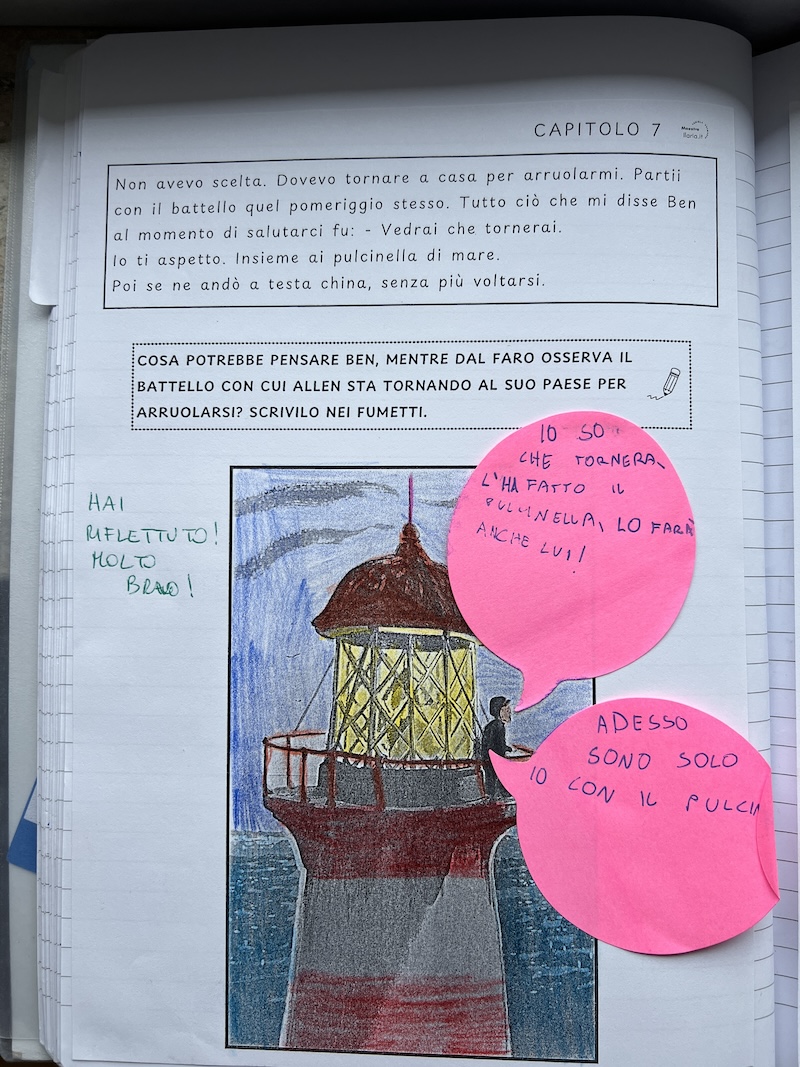 CAPITOLO 7
Maestra
Ilaria.it
Non avevo scelta. Dovevo tornare a casa per arruolarmi. Partii
con il battello quel pomeriggio stesso. Tutto ciò che mi disse Ben
al momento di salutarci fu: - Vedrai che tornerai.
Io ti aspetto. Insieme ai pulcinella di mare.
Poi se ne andò a testa china, senza più voltarsi.
COSA POTREBBE PENSARE BEN, MENTRE DAL FARO OSSERVA IL
BATTELLO CON CUI ALLEN STA TORNANDO AL SUO PAESE PER
ARRUOLARSI? SCRIVILO NEI FUMETTI.
IO SO
CHE TORNERÀ,
L'HA FATTO IL
PULCINELLA, LO FARÀ
ANCHE LUI!
HAI
RIFLETTUTO!
MOLTO
BRAVO!
ADESSO
SONO SOLO
IO CON IL PULCIN